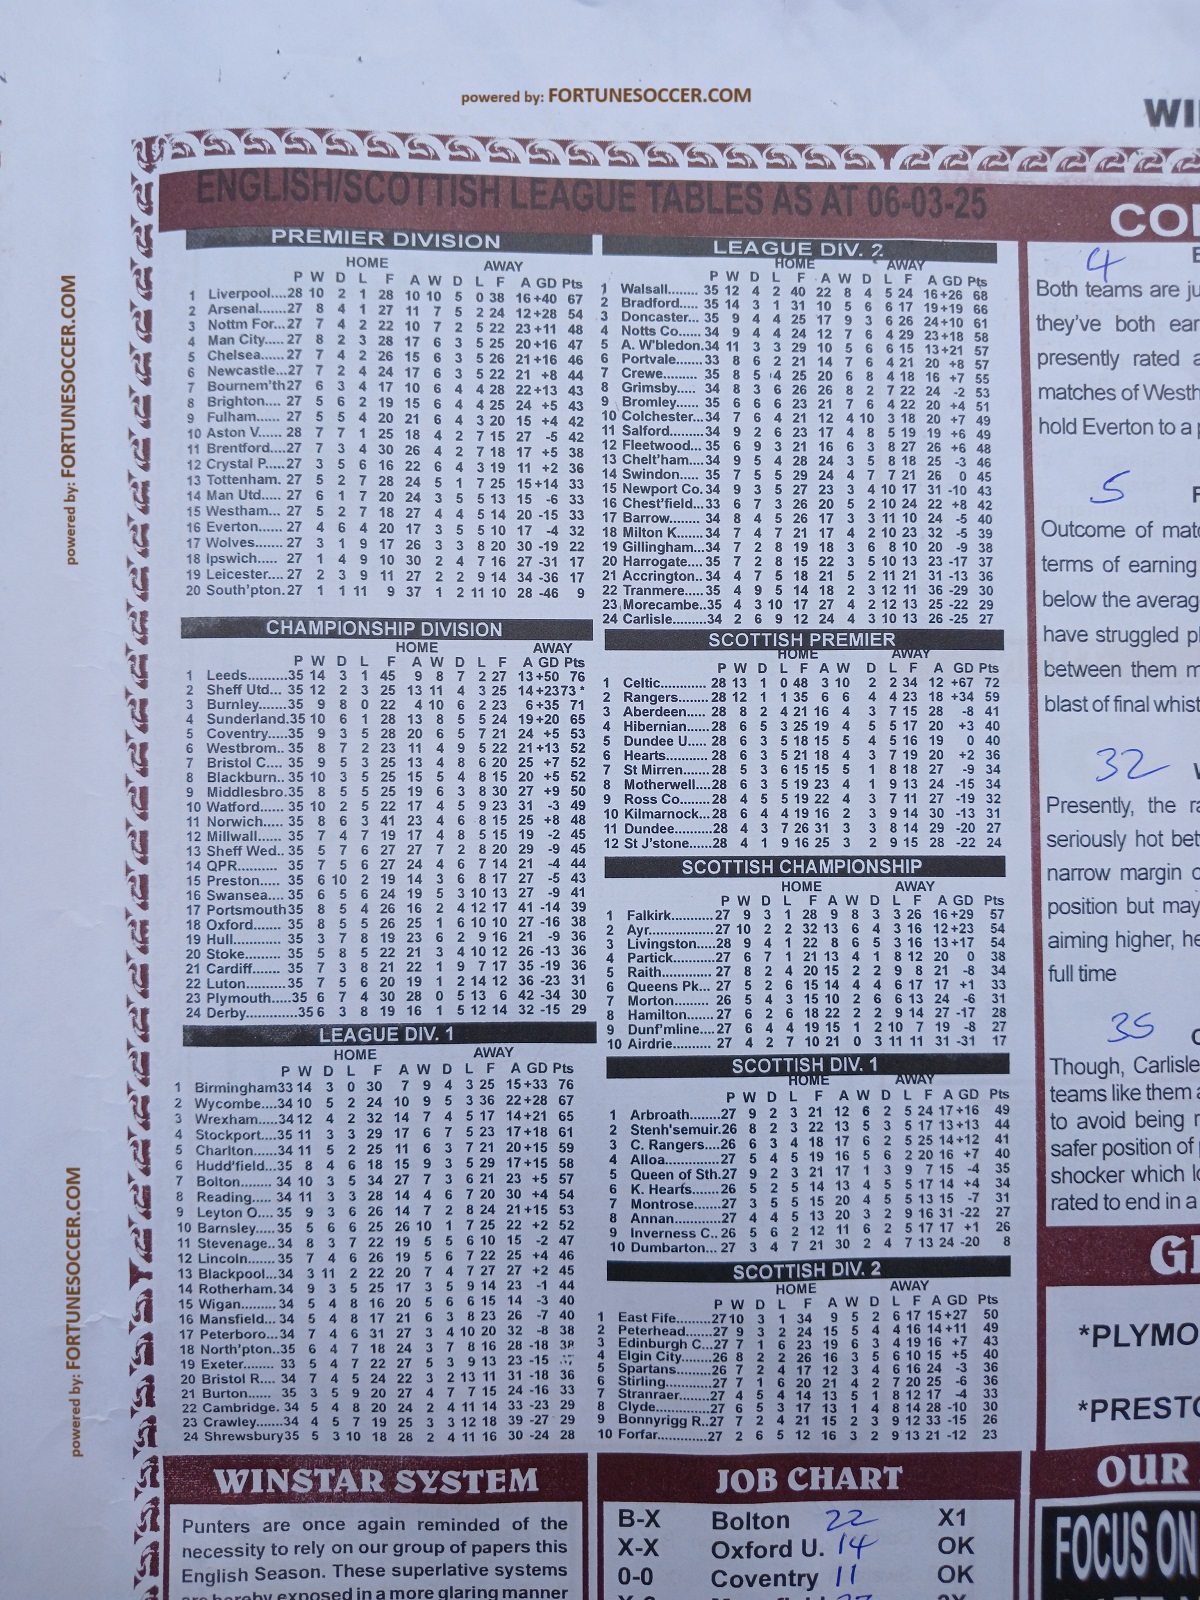 powered by: FORTUNESOCCER.COM
WI
ENGLISH/SCOTTISH LEAGUE TABLES AS AT 06-03-25
PREMIER DIVISION
HOME AWAY
P W D L F A W D L F A GD Pts
1 Liverpool....28 10 2 1 28 10 10 5 0 38 16 +40 67
2 Arsenal.......27 8 4 1 27 11 7 5 2 24 12 +28 54
3 Nottm For...27 7 4 2 22 10 7 2 5 22 23 +11 48
4 Man City.....27 8 2 3 28 17 6 3 5 25 20 +16 47
5 Chelsea......27 7 4 2 26 15 6 3 5 26 21 +16 46
6 Newcastle...27 7 2 4 24 17 6 3 5 22 21 +8 44
7 Bournem'th27 6 3 4 17 10 6 4 4 28 22 +13 43
8 Brighton.... 27 5 6 2 19 15 6 4 4 25 24 +5 43
9 Fulham...... 27 5 5 4 20 21 6 4 3 20 15 +4 42
10 Aston V...... 28 7 7 1 25 18 4 2 7 15 27 -5 42
11 Brentford....27 7 3 4 30 26 4 2 7 18 17 +5 38
12 Crystal P.....27 3 5 6 16 22 6 4 3 19 11 +2 36
13 Tottenham. 27 5 2 7 28 24 5 1 7 25 15 +14 33
14 Man Utd..... 27 6 1 7 20 24 3 5 5 13 15 -6 33
15 Westham... 27 5 2 7 18 27 4 4 5 14 20 -15 33
16 Everton...... 27 4 6 4 20 17 3 5 5 10 17 -4 32
17 Wolves...... 27 3 1 9 17 26 3 3 8 20 30 -19 22
18 Ipswich..... 27 1 4 9 10 30 2 4 7 16 27 -31 17
19 Leicester.... 27 2 3 9 11 27 2 2 9 14 34 -36 17
20 South'pton.27 1 1 11 9 37 1 2 11 10 28 -46 9
CHAMPIONSHIP DIVISION
HOME AWAY
P W D L F A W D L F A GD Pts
1 Leeds..........35 14 3 1 45 9 8 7 2 27 13 +50 76
2 Sheff Utd...35 12 2 3 25 13 11 4 3 25 14 +23 73 *
3 Burnley.......35 9 8 0 22 4 10 6 2 23 6 +35 71
4 Sunderland.35 10 6 1 28 13 8 5 5 24 19 +20 65
5 Coventry.....35 9 3 5 28 20 6 5 7 21 24 +5 53
6 Westbrom.. 35 8 7 2 23 11 4 9 5 22 21 +13 52
7 Bristol C.... 35 9 5 3 25 13 4 8 6 20 25 +7 52
8 Blackburn.. 35 10 3 5 25 15 5 4 8 15 20 +5 52
9 Middlesbro.35 8 5 5 25 19 6 3 8 30 27 +9 50
10 Watford..... 35 10 2 5 22 17 4 5 9 23 31 -3 49
11 Norwich..... 35 8 6 3 41 23 4 6 8 15 25 +8 48
12 Millwall...... 35 7 4 7 19 17 4 8 5 15 19 -2 45
13 Sheff Wed.. 35 5 7 6 27 27 7 2 8 20 29 -9 45
14 QPR.......... 35 7 5 6 27 24 4 6 7 14 21 -4 44
15 Preston..... 35 6 10 2 19 14 3 6 8 17 27 -5 43
16 Swansea.... 35 6 5 6 24 19 5 3 10 13 27 -9 41
17 Portsmouth35 8 5 4 26 16 2 4 12 17 41 -14 39
18 Oxford........35 8 5 5 26 25 1 6 10 10 27 -16 38
19 Hull............35 3 7 8 19 23 6 2 9 16 21 -9 36
20 Stoke........ 35 5 8 5 22 21 3 4 10 12 26 -13 36
21 Cardiff....... 35 7 3 8 21 22 1 9 7 17 35 -19 36
22 Luton......... 35 7 5 6 20 19 1 2 14 12 36 -23 31
23 Plymouth....35 6 7 4 30 28 0 5 13 6 42 -34 30
24 Derby.........35 6 3 8 19 16 1 5 12 14 32 -15 29
LEAGUE DIV. 1
HOME AWAY
P W D L F A W D L F A GD Pts
1 Birmingham33 14 3 0 30 7 9 4 3 25 15 +33 76
2 Wycombe....34 10 5 2 24 10 9 5 3 36 22 +28 67
3 Wrexham....34 12 4 2 32 14 7 4 5 17 14 +21 65
4 Stockport....35 11 3 3 29 17 6 7 5 23 17 +18 61
5 Charlton.....34 11 5 2 25 11 6 3 7 21 20 +15 59
6 Hudd'field...35 8 4 6 18 15 9 3 5 29 17 +15 58
7 Bolton........34 10 3 5 34 27 7 3 6 21 23 +5 57
8 Reading.....34 11 3 3 28 14 4 6 7 20 30 +4 54
9 Leyton O....35 9 3 6 26 14 7 2 8 24 21 +15 53
10 Barnsley....35 5 6 6 25 26 10 1 7 25 22 +2 52
11 Stevenage..34 8 3 7 22 19 5 5 6 10 15 -2 47
12 Lincoln......35 7 4 6 26 19 5 6 7 22 25 +4 46
13 Blackpool...34 3 11 2 22 20 7 4 7 27 27 +2 45
14 Rotherham.34 9 3 5 25 17 3 5 9 14 23 -1 44
15 Wigan.........34 5 4 8 16 20 5 6 6 15 14 -3 40
16 Mansfield....34 5 4 8 17 21 6 3 8 23 26 -7 40
17 Peterboro...34 7 4 6 31 27 3 4 10 20 32 -8 38
18 North'pton..35 6 4 7 18 24 3 7 8 16 28 -18 38
19 Exeter........ 33 5 4 7 22 27 5 3 9 13 23 -15
20 Bristol R.... 34 7 4 5 24 22 3 2 13 11 31 -18 36
21 Burton....... 35 3 5 9 20 27 4 7 7 15 24 -16 33
22 Cambridge. 34 5 4 8 20 24 2 4 11 14 33 -23 29
23 Crawley......34 4 5 7 19 25 3 3 12 18 39 -27 29
24 Shrewsbury35 5 3 10 18 28 2 4 11 16 30 -24 28
LEAGUE DIV. 2
HOME AWAY
P W D L F A W D L F A GD Pts
1 Walsall....... 35 12 4 2 40 22 8 4 5 24 16 +26 68
2 Bradford..... 35 14 3 1 31 10 5 6 6 17 19 +19 66
3 Doncaster... 35 9 4 4 25 17 9 3 6 26 24 +10 61
4 Notts Co.....34 9 4 4 24 12 7 6 4 29 23 +18 58
5 A. W'bledon.34 11 3 3 29 10 5 6 6 15 13 +21 57
6 Portvale..... 33 8 6 2 21 14 7 6 4 21 20 +8 57
7 Crewe........ 35 8 5 4 25 20 6 8 4 18 16 +7 55
8 Grimsby..... 34 8 3 6 26 26 8 2 7 22 24 -2 53
9 Bromley......35 6 6 6 23 21 7 6 4 22 20 +4 51
10 Colchester..34 7 6 4 21 12 4 10 3 18 20 +7 49
11 Salford....... 34 9 2 6 23 17 4 8 5 19 19 +6 49
12 Fleetwood... 35 6 9 3 21 16 6 3 8 27 26 +6 48
13 Chelt'ham... 34 9 5 4 28 24 3 5 8 18 25 -3 46
14 Swindon.... 35 7 5 5 29 24 4 7 7 21 26 0 45
15 Newport Co.34 9 3 5 27 23 3 4 10 17 31 -10 43
16 Chest'field...33 6 7 3 26 20 5 2 10 24 22 +8 42
17 Barrow....... 34 8 4 5 26 17 3 3 11 10 24 -5 40
18 Milton K...... 34 7 4 7 21 17 4 2 10 23 32 -5 39
19 Gillingham...34 7 2 8 19 18 3 6 8 10 20 -9 38
20 Harrogate....35 7 2 8 15 22 3 5 10 13 23 -17 37
21 Accrington..34 4 7 5 18 21 5 2 11 21 31 -13 36
22 Tranmere....35 4 9 5 14 18 2 3 12 11 36 -29 30
23 Morecambe..35 4 3 10 17 27 4 2 12 13 25 -22 29
24 Carlisle.......34 2 6 9 12 24 4 3 10 13 26 -25 27
SCOTTISH PREMIER
HOME AWAY
P W D L F A W D L F A GD Pts
1 Celtic............ 28 13 1 0 48 3 10 2 2 34 12 +67 72
2 Rangers....... 28 12 1 1 35 6 6 4 4 23 18 +34 59
3 Aberdeen..... 28 8 2 4 21 16 4 3 7 15 28 -8 41
4 Hibernian..... 28 6 5 3 25 19 4 5 5 17 20 +3 40
5 Dundee U..... 28 6 3 5 18 15 5 4 5 16 19 0 40
6 Hearts.......... 28 6 3 5 21 18 4 3 7 19 20 +2 36
7 St Mirren.......28 5 3 6 15 15 5 1 8 18 27 -9 34
8 Motherwell....28 6 3 5 19 23 4 1 9 13 24 -15 34
9 Ross Co....... 28 4 5 5 19 22 4 3 7 11 27 -19 32
10 Kilmarnock...28 6 4 4 19 16 2 3 9 14 30 -13 31
11 Dundee........28 4 3 7 26 31 3 3 8 14 29 -20 27
12 St J'stone.....28 4 1 9 16 25 3 2 9 15 28 -22 24
SCOTTISH CHAMPIONSHIP
HOME AWAY
P W D L F A W D L F A GD Pts
1 Falkirk...........27 9 3 1 28 9 8 3 3 26 16 +29 57
2 Ayr................27 10 2 2 32 13 6 4 3 16 12 +23 54
3 Livingston.....28 9 4 1 22 8 6 5 3 16 13 +17 54
4 Partick..........27 6 7 1 21 13 4 1 8 12 20 0 38
5 Raith.............27 8 2 4 20 15 2 2 9 8 21 -8 34
6 Queens Pk...27 5 2 6 15 14 4 4 6 17 17 +1 33
7 Morton......... 26 5 4 3 15 10 2 6 6 13 24 -6 31
8 Hamilton.......27 6 2 6 18 22 2 2 9 14 27 -17 28
9 Dunf'mline....27 6 4 4 19 15 1 2 10 7 19 -8 27
10 Airdrie..........27 4 2 7 10 21 0 3 11 11 31 -31 17
SCOTTISH DIV. 1
HOME AWAY
P W D L F A W D L F A GD Pts
1 Arbroath.......27 9 2 3 21 12 6 2 5 24 17 +16 49
2 Stenh'semuir.26 8 2 3 22 13 5 3 5 17 13 +13 44
3 C. Rangers....26 6 3 4 18 17 6 2 5 25 14 +12 41
4 Alloa............27 5 4 5 19 16 5 6 2 20 16 +7 40
5 Queen of Sth.27 9 2 3 21 17 1 3 9 7 15 -4 35
6 K. Hearts.......26 5 2 5 14 13 4 5 5 17 14 +4 34
7 Montrose......27 3 5 5 15 20 4 5 5 13 15 -7 31
8 Annan..........27 4 4 5 13 20 3 2 9 16 31 -22 27
9 Inverness C.. 26 5 6 2 12 11 6 2 5 17 17 +1 26
10 Dumbarton... 27 3 4 7 21 30 2 4 7 13 24 -20 8
SCOTTISH DIV. 2
HOME AWAY
P W D L F A W D L F A GD Pts
1 East Fife.......27 10 3 1 34 9 5 2 6 17 15 +27 50
2 Peterhead.....27 9 3 2 24 15 5 4 4 16 14 +11 49
3 Edinburgh C...27 7 1 6 23 19 6 3 4 19 16 +7 43
4 Elgin City......26 8 2 2 26 16 3 5 6 10 15 +5 40
5 Spartans.......26 7 2 4 17 12 3 4 6 16 24 -3 36
6 Stirling.........27 7 1 6 20 21 4 2 7 20 25 -6 36
7 Stranraer......27 4 5 4 14 13 5 1 8 12 17 -4 33
8 Clyde...........27 6 5 3 17 13 1 4 8 14 28 -10 30
9 Bonnyrigg R..27 7 2 4 21 15 2 3 9 12 33 -15 26
10 Forfar............27 2 6 5 12 16 3 2 9 13 21 -12 23
CO
4
Both teams are ju
they've both ear
presently rated a
matches of Westh
hold Everton to a
5
Outcome of mat
terms of earning
below the averag
have struggled p
between them m
blast of final whist
32
Presently, the ra
seriously hot bet
narrow margin o
position but may
aiming higher, he
full time
35
Though, Carlisle
teams like them a
to avoid being r
safer position of
shocker which lo
rated to end in a
G
*PLYMO
*PRESTO
OUR
FOCUS ON
WINSTAR SYSTEM
Punters are once again reminded of the
necessity to rely on our group of papers this
English Season. These superlative systems
are hereby exposed in a more glaring manner
JOB CHART
B-X Bolton 22 X1
X-X Oxford U. 14 OK
0-0 Coventry 11 OK
powered by: FORTUNESOCCER.COM
powered by: FORTUNESOCCER.COM